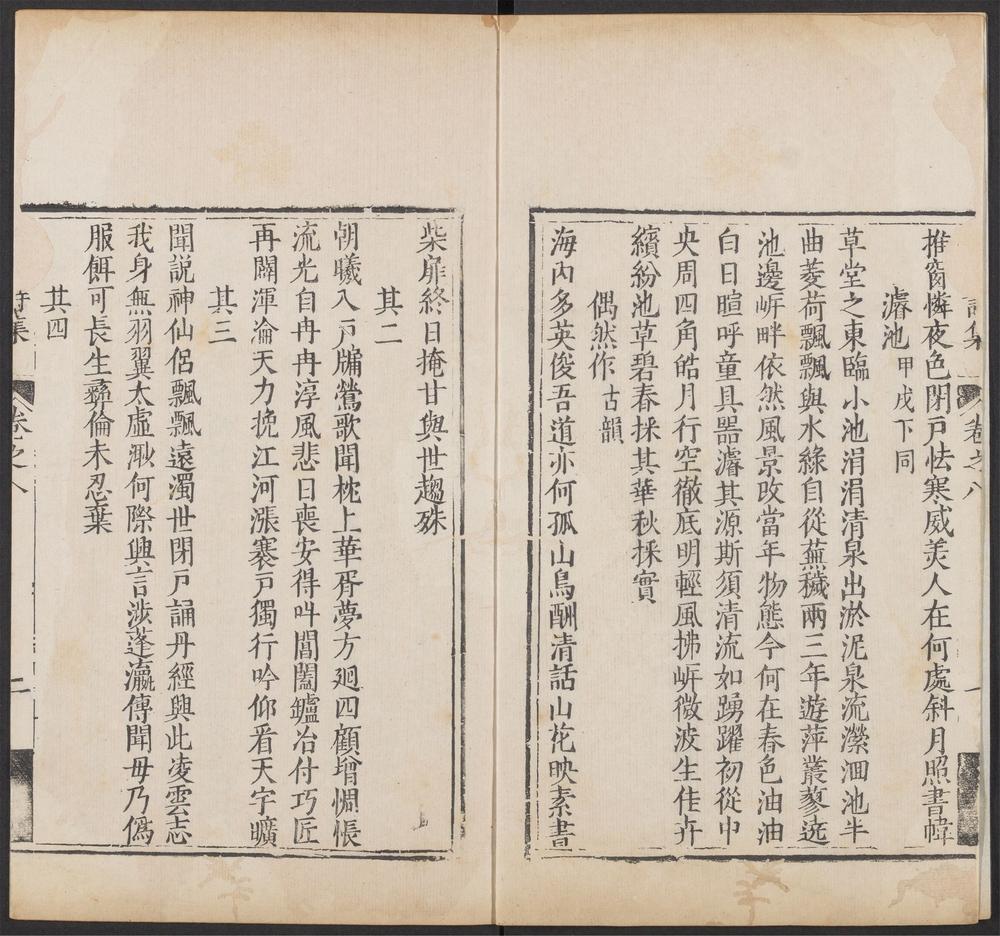 詩集 卷之八 一
推窗憐夜色閉戸怯寒威美人在何處斜月照書幃
濬池甲戌下同
草堂之東臨小池涓涓清泉出淤泥泉流瀠洄池半
曲菱荷飄飄與水綠自從蕪穢兩三年遊萍叢蓼遶
池邊岍畔依然風景改當年物態今何在春色油油
白日暄呼童具器濬其源斯須清流如踴躍初從中
央周四角皓月行空徹底明輕風拂岍微波生佳卉
繽紛池草碧春採其華秋採實
偶然作古韻
海內多英俊吾道亦何孤山鳥酬清話山花映素書
柴扉終日掩甘與世趨殊
其二
朝曦入戸牖鶯歌聞枕上華胥夢方廻四顧增惆悵
流光自冉冉淳風悲日喪安得叫閶闔鑪冶付巧匠
再闢渾淪天力挽江河漲褰戸獨行吟仰看天宇曠
其三
聞説神仙侶飄飄遠濁世閉戸誦丹經興此凌雲志
我身無羽翼太虛渺何際興言涉蓬瀛傳聞毋乃僞
服餌可長生彞倫未忍棄
其四
詩集 卷之八 二